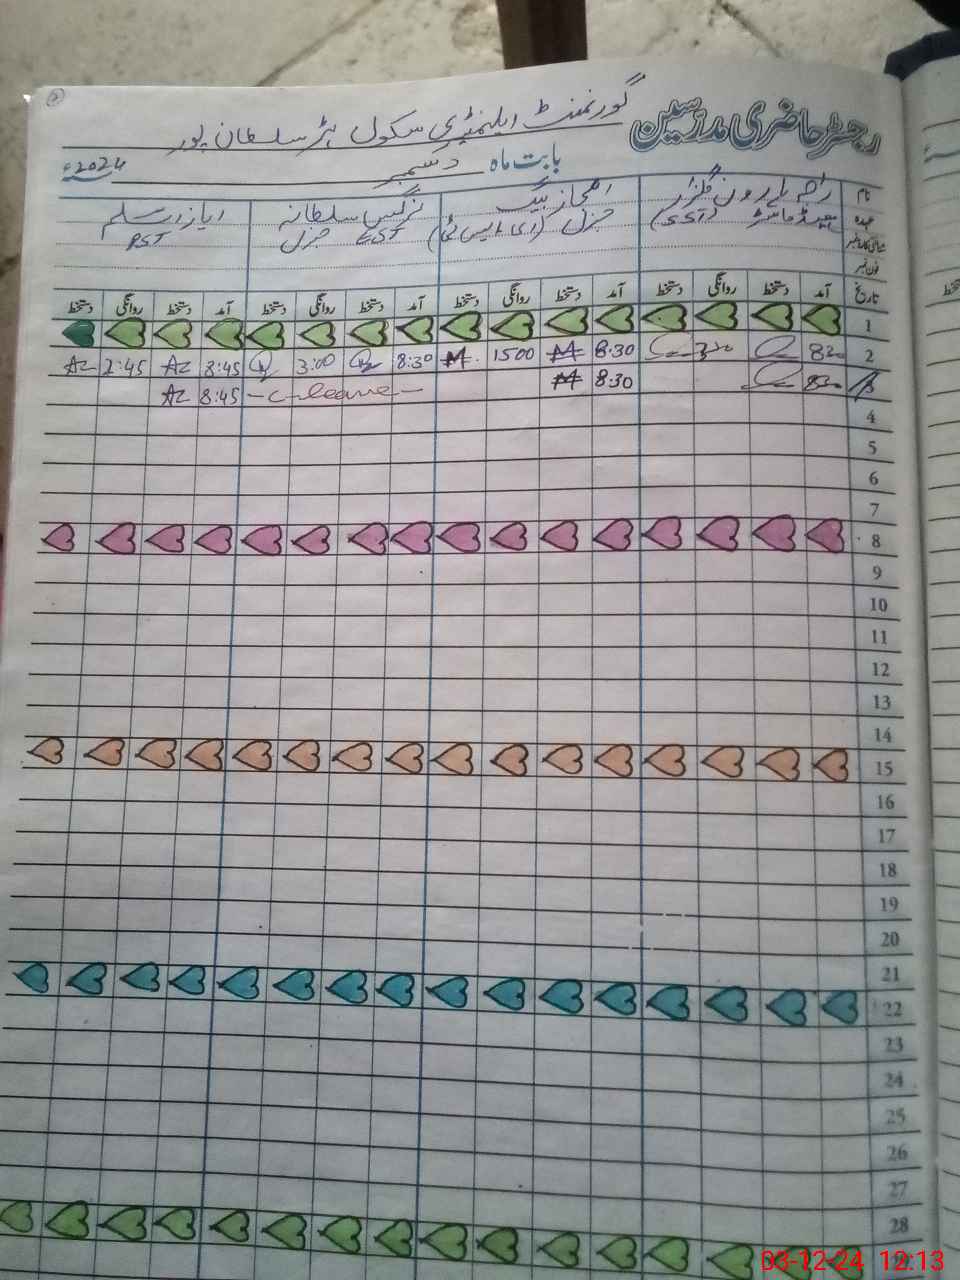 رجسٹر حاضری مدرسین
گورنمنٹ ایلیمنٹری سکول ہڑ سلطان پور
بابت ماہ دسمبر 2024ء
نام
نرگس سلطانہ
عہدہ ہیڈ ماسٹر
جنرل
EST جنرل
PST
فون نمبر
تاریخ آمد دستخط روانگی دستخط آمد دستخط روانگی دستخط آمد دستخط روانگی دستخط آمد دستخط روانگی دستخط
1
2 820 8:30 1500 8:30 3:00 8:45 Az 2:45 Az
3 820 8:30 - c-leave - 8:45 Az
4
5
6
7
8
9
10
11
12
13
14
15
16
17
18
19
20
21
22
23
24
25
26
27
28
03-12-24 12:13